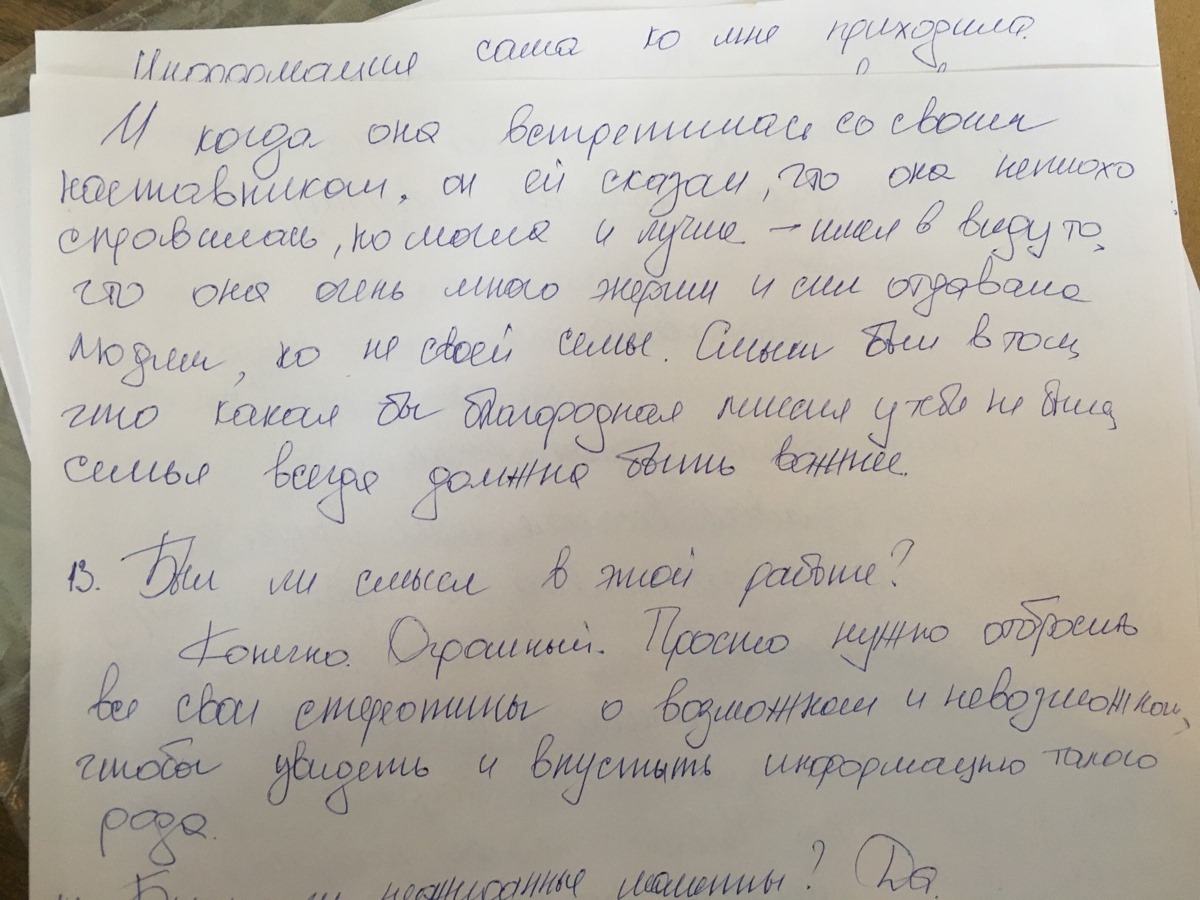 Информация сама ко мне приходила.
И когда она встретилась со своим
наставником, он ей сказал, что она неплохо
справилась, но могла и лучше – имел в виду то,
что она очень много энергии и сил отдавала
людям, но не своей семье. Смысл был в том,
что какая бы благородная миссия у тебя не была,
семья всегда должна быть важнее.
13. Был ли смысл в этой работе?
Конечно. Огромный. Просто нужно отбросить
все свои стереотипы о возможном и невозможном,
чтобы увидеть и впустыть информацию такого
рода.
ли неожиданные моменты? Да.